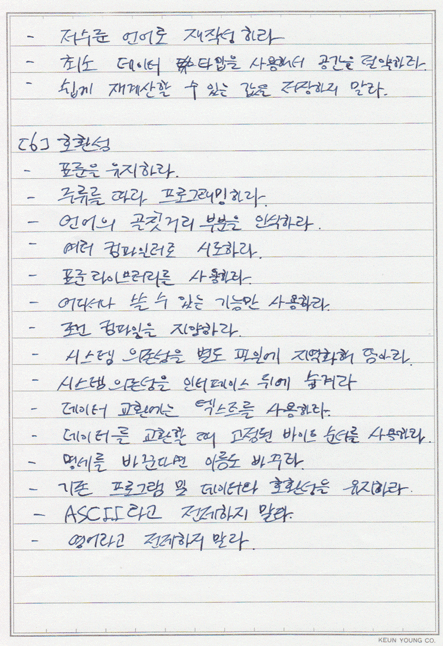 - 저수준 언어로 재작성 하라
- 최소 데이터 타입을 사용해서 공간을 절약하라.
- 쉽게 재계산할 수 있는 값은 저장하지 말라.
[6] 호환성
- 표준을 유지하라.
- 주류를 따라 프로그래밍하라.
- 언어의 골칫거리 부분을 인식하라.
- 여러 컴파일러로 시도하라.
- 표준 라이브러리를 사용하라.
- 어디서나 쓸 수 있는 기능만 사용하라.
- 조건 컴파일을 지양하라.
- 시스템 의존성을 별도 파일에 지역화해 둬라.
- 시스템 의존성을 인터페이스 뒤에 숨겨라
- 데이터 교환에는 텍스트를 사용하라.
- 데이터를 교환할 때 고정된 바이트 순서를 사용하라.
- 명세를 바꾼다면 이름도 바꾸라.
- 기존 프로그램 및 데이터와 호환성을 유지하라.
- ASCII라고 전제하지 말라.
- 영어라고 전제하지 말라.
KEUN YOUNG CO.